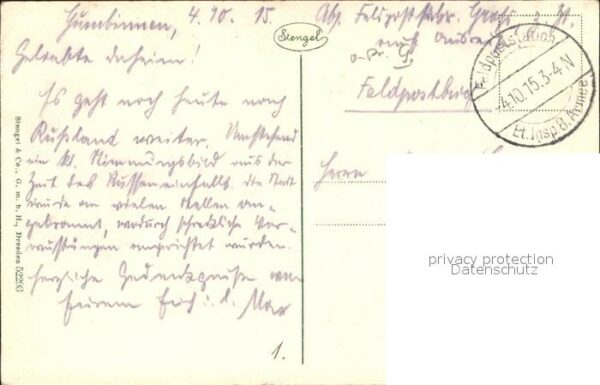 Gumbinnen, 4.10.15.
Geliebte daheim!
Es geht noch heute nach
Rußland weiter. Umstehend
ein kl. Stimmungsbild aus der
Zeit des Russeneinfalls. Die Stadt
wurde an vielen Stellen an-
gebrannt, wodurch schreckliche Ver-
wüstungen angerichtet wurden.
Herzliche Gedenkgrüße von
Eurem
Max
1.
Stengel
Stengel & Co., G. m. b. H., Dresden 52203
Abs. Feldpost
Feldpostbrief
Herrn
Feldpoststation
4.10.15. 3-4 N
Et. Insp. 8. Armee
privacy protection
Datenschutz